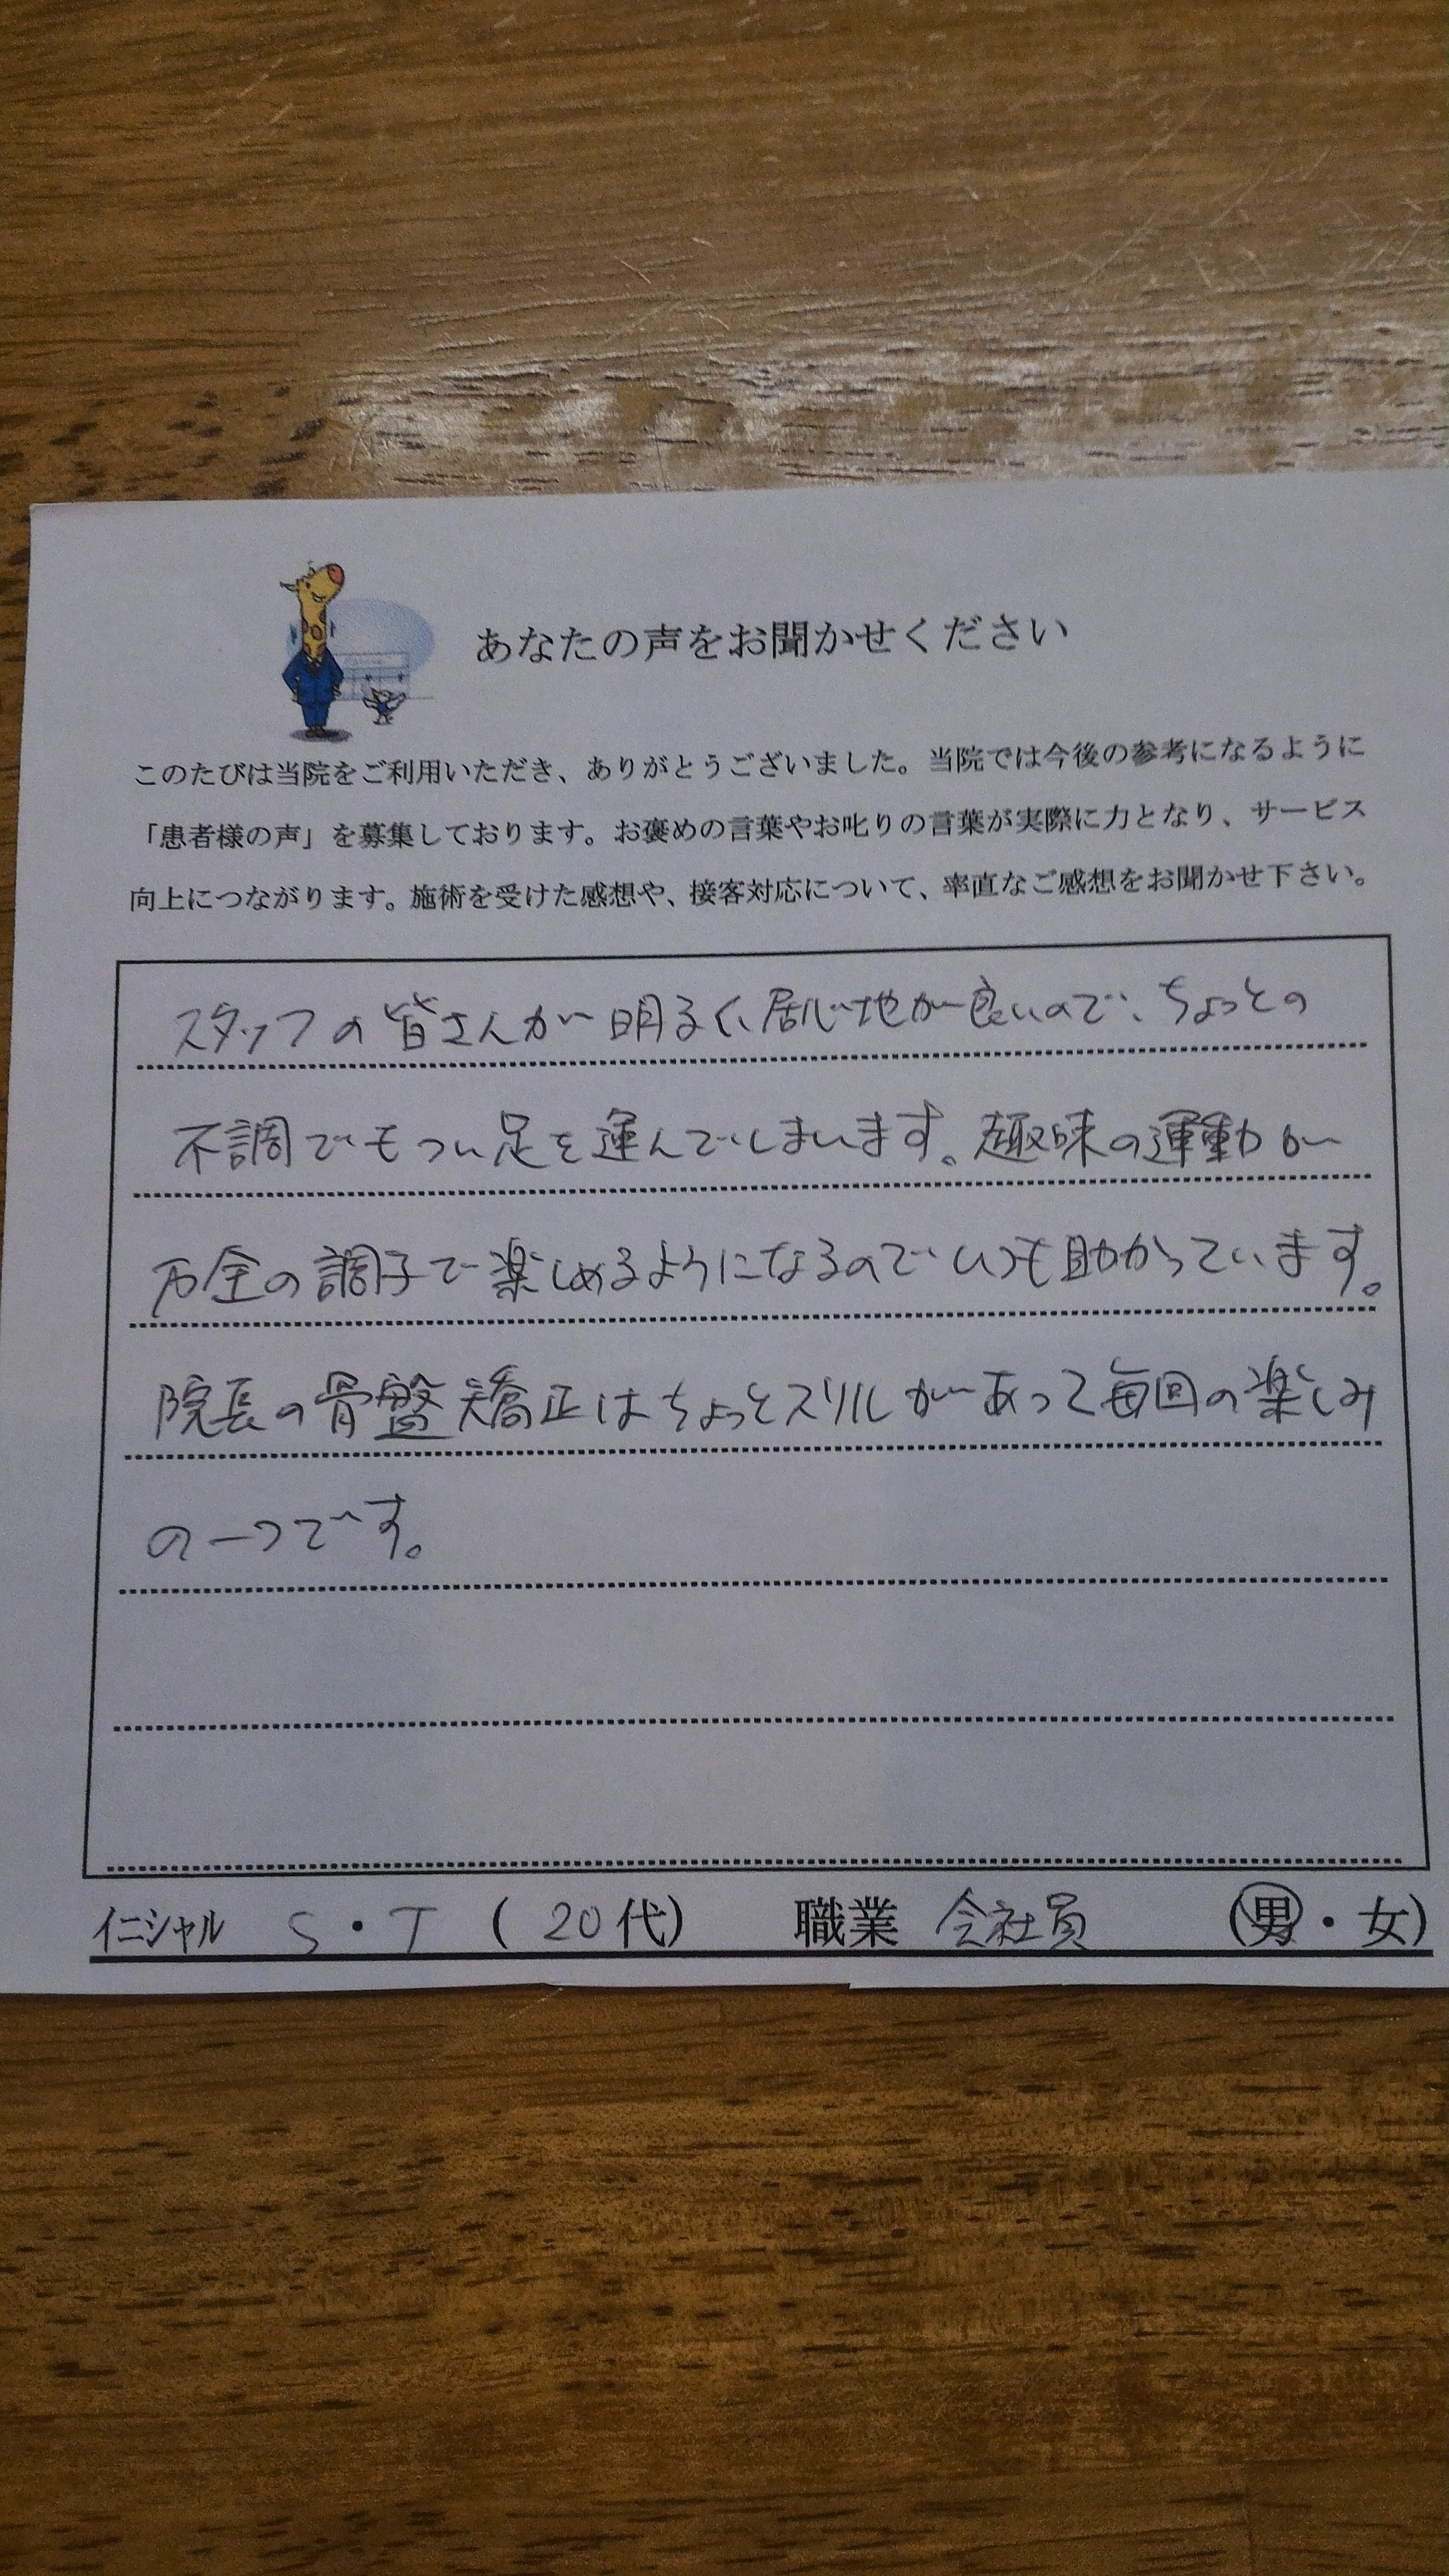 あなたの声をお聞かせください
このたびは当院をご利用いただき、ありがとうございました。当院では今後の参考になるように
「患者様の声」を募集しております。お褒めの言葉やお叱りの言葉が実際に力となり、サービス
向上につながります。施術を受けた感想や、接客対応について、率直なご感想をお聞かせ下さい。
スタッフの皆さんが明るく、居心地が良いので、ちょっとの
不調でもつい足を運んでしまいます。趣味の運動が
万全の調子で楽しめるようになるのでいつも助かっています。
院長の骨盤矯正はちょっとスリルがあって毎回の楽しみ
の一つです。
イニシャル S・T (20代) 職業 会社員 (男・女)